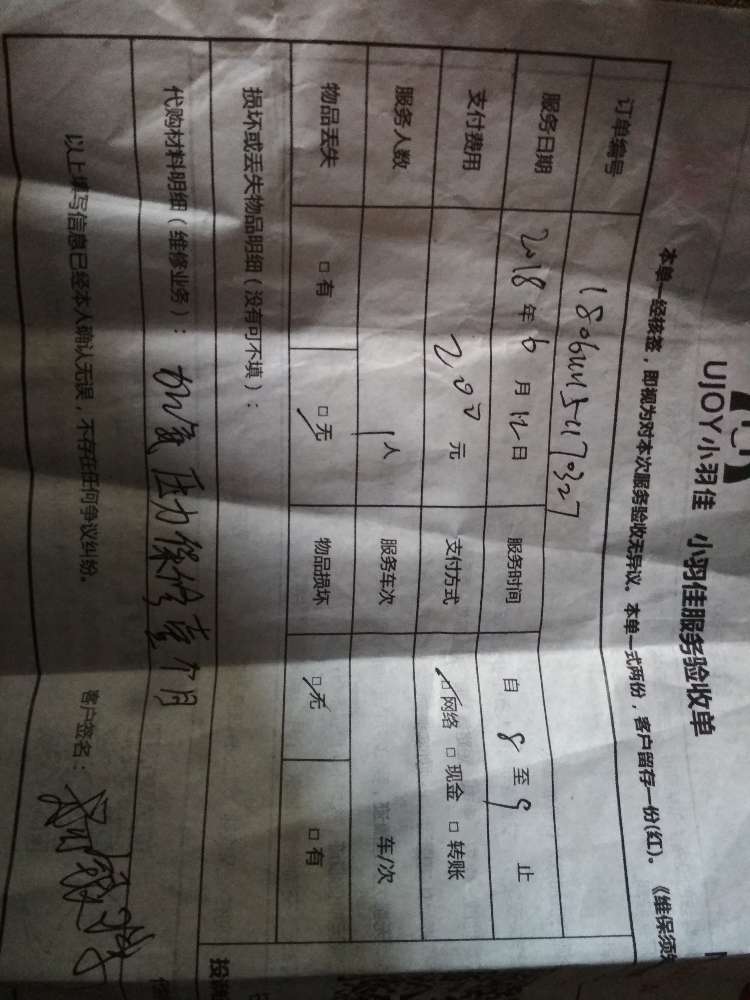 UJOY小羽佳 小羽佳服务验收单
本单一经核签，即视为对本次服务验收无异议。本单一式两份，客户留存一份(红)。《维保须
订单编号
服务日期 2018年6月12日 服务时间 自8至9止
支付费用 200元 支付方式 □网络 □现金 □转账
服务人数 1人 服务车次 车/次
物品丢失 □有 □无 物品损坏 □无 □有
损坏或丢失物品明细（没有可不填）：
代购材料明细（维修业务）：加氟压力保修壹个月
以上填写信息已经本人确认无误，不存在任何争议纠纷。 客户签名：